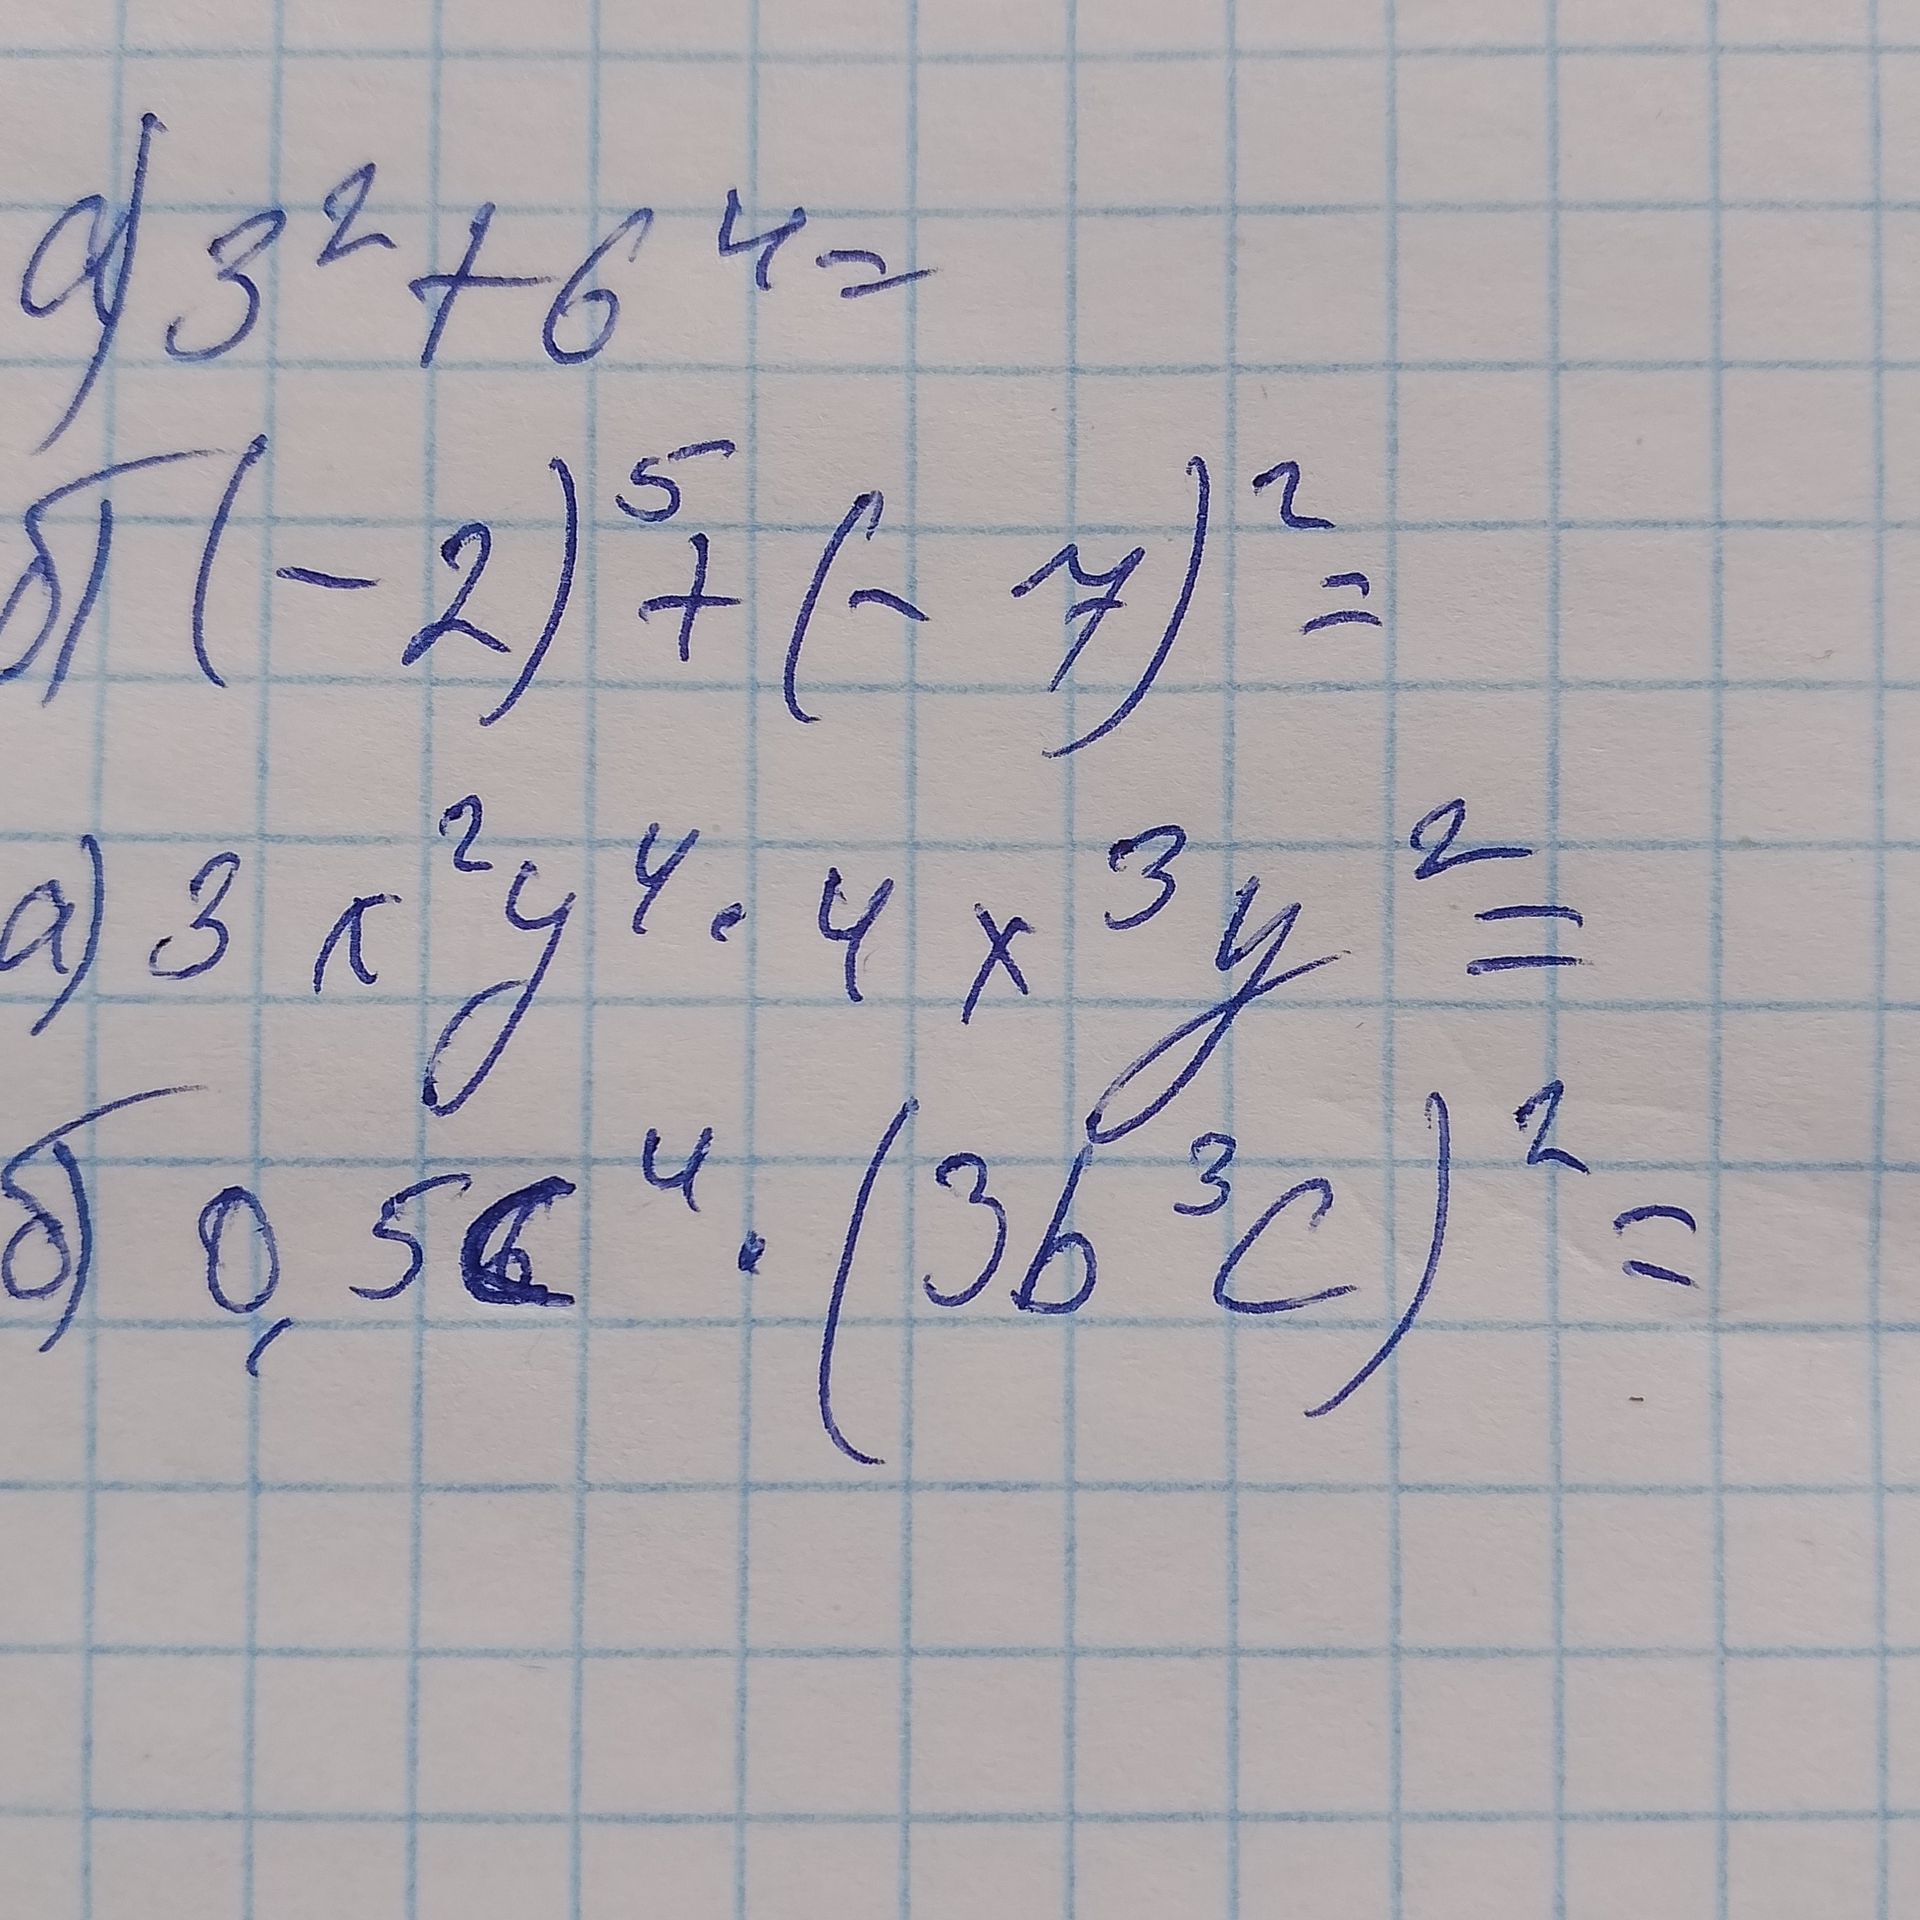 а) 3² + 6⁴ =
б) (-2)⁵ + (-7)² =
а) 3x²y⁴ · 4x³y² =
б) 0,5c⁴ · (3b³c)² =